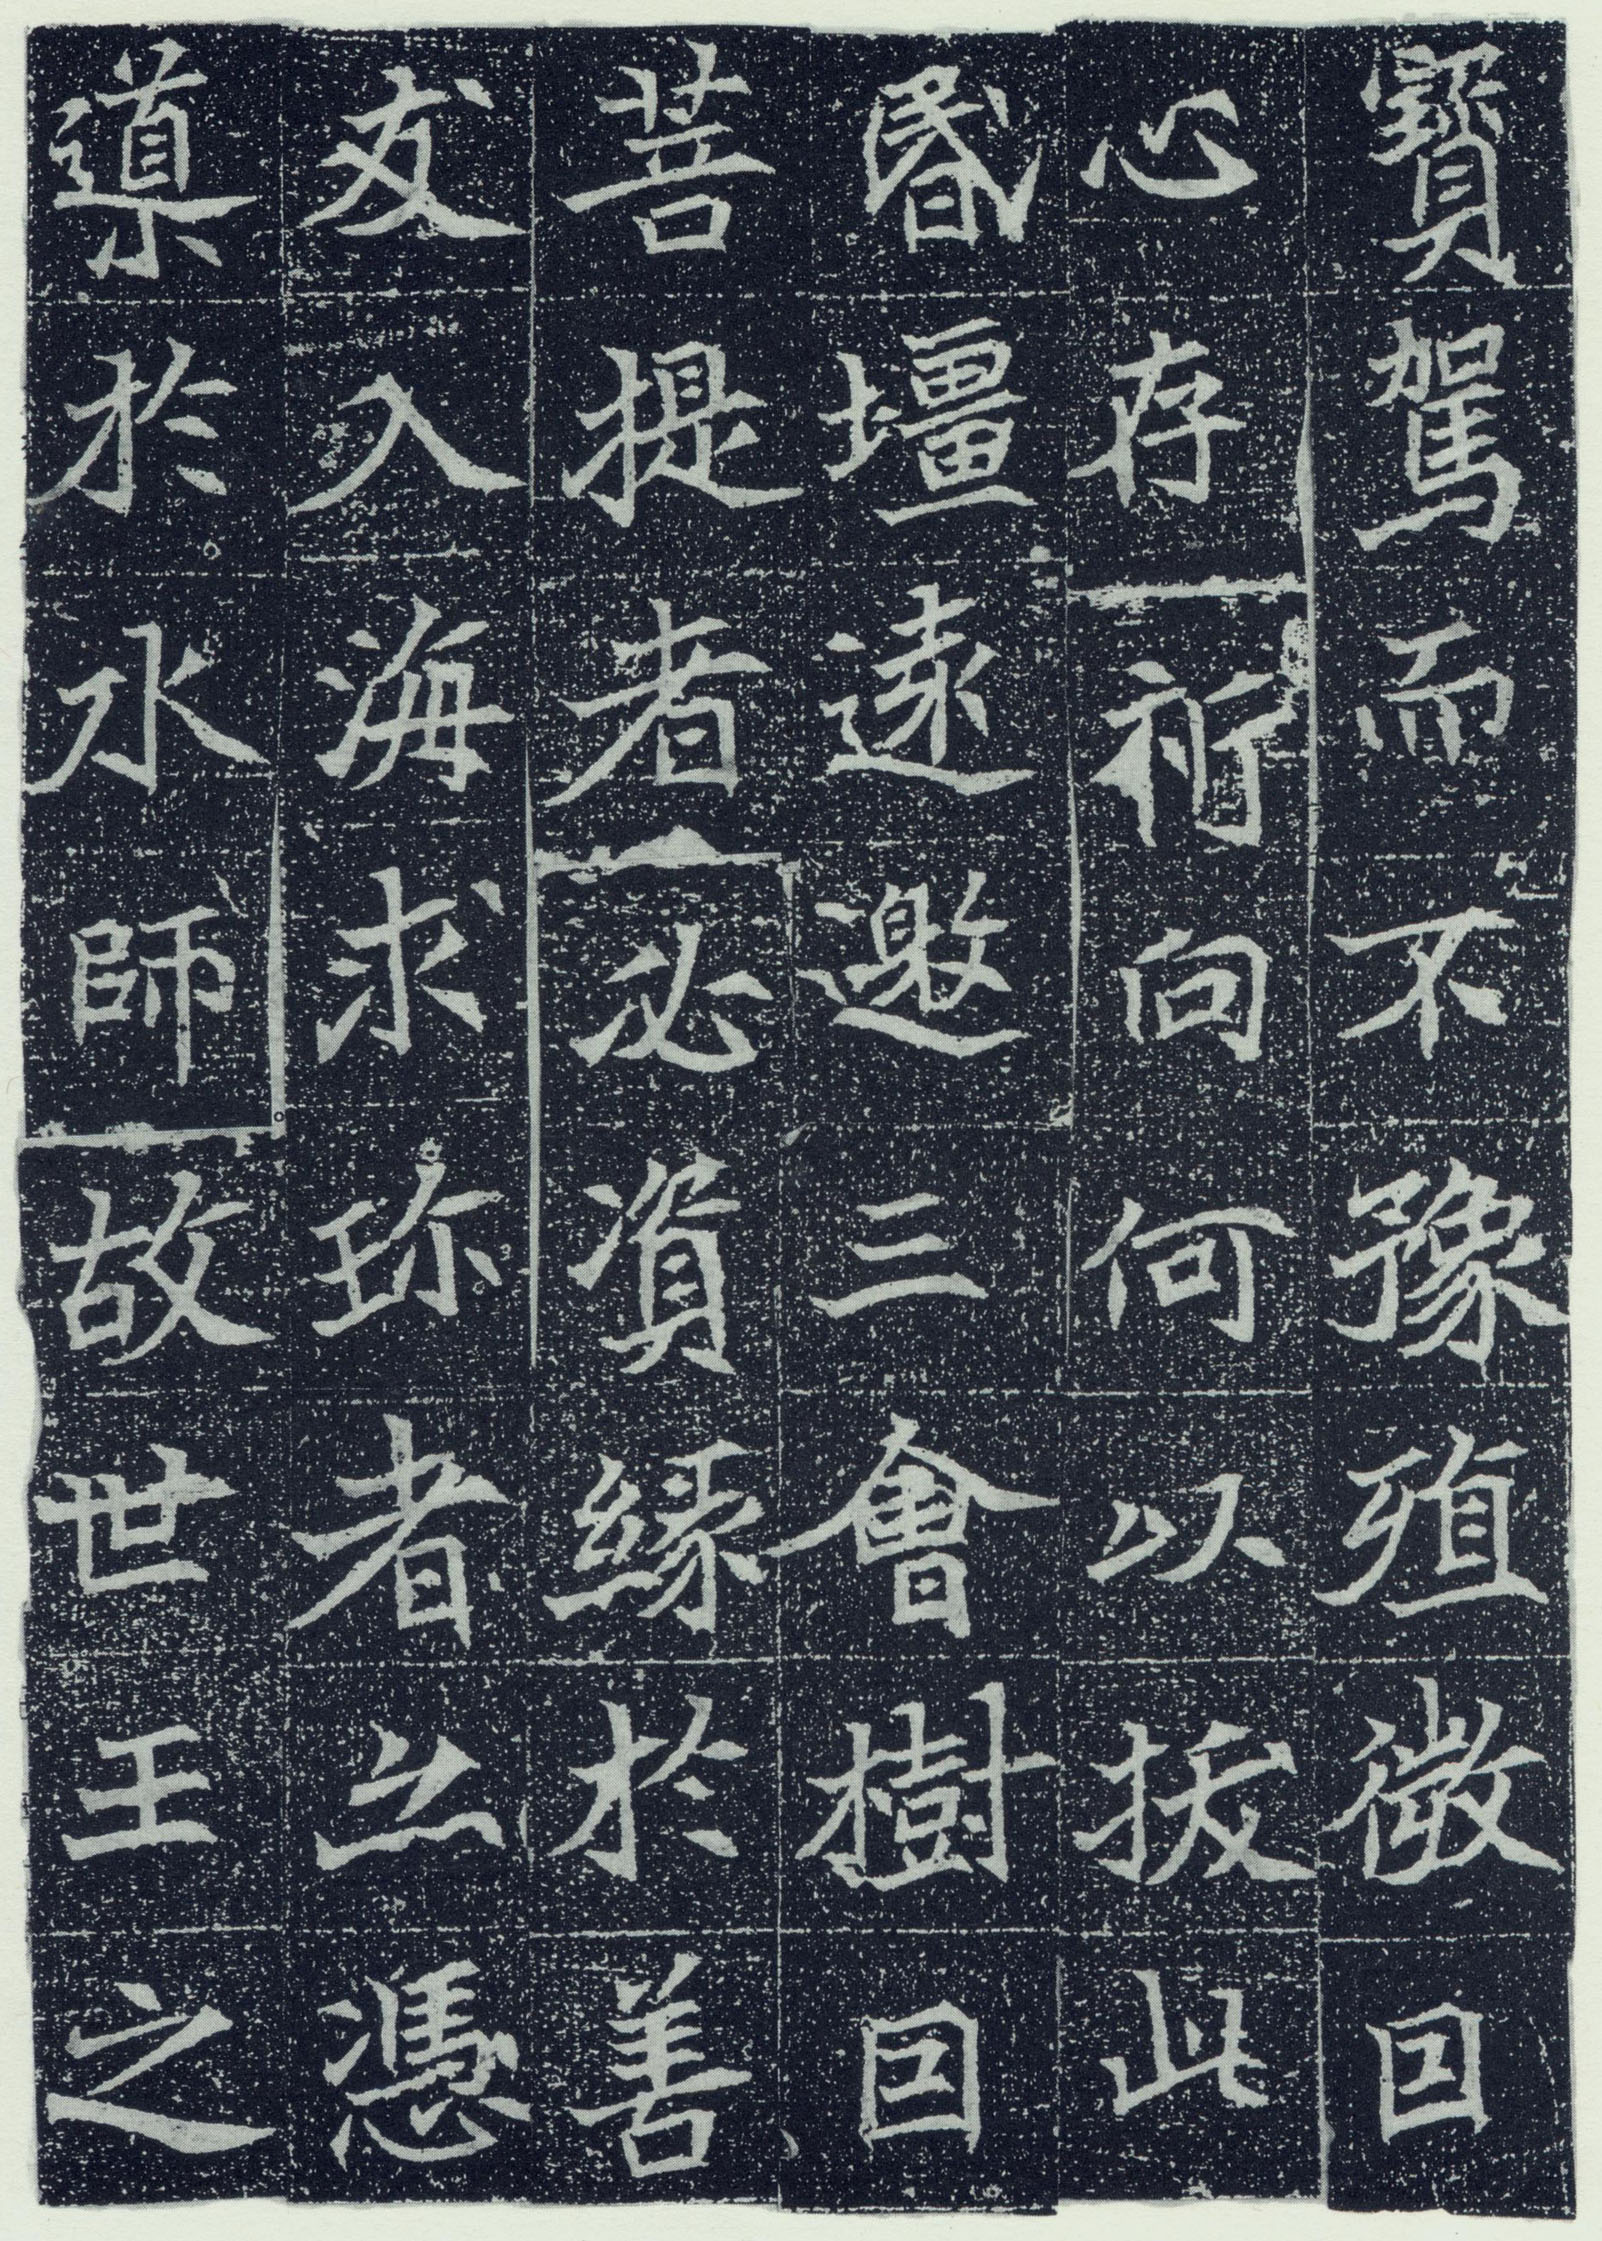 寳駕而不豫殖微因
心存祈向何以拔此
昬壃遠邀三會樹因
菩提者必資緣於善
友入海求珎者亦憑
導於水師故世王之